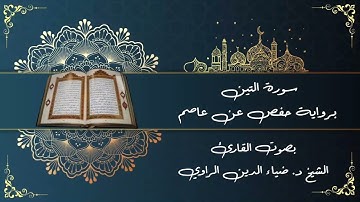 سورة التين
برواية حفص عن عاصم
بصوت القارئ
الشيخ د. ضياء الدين الراوي